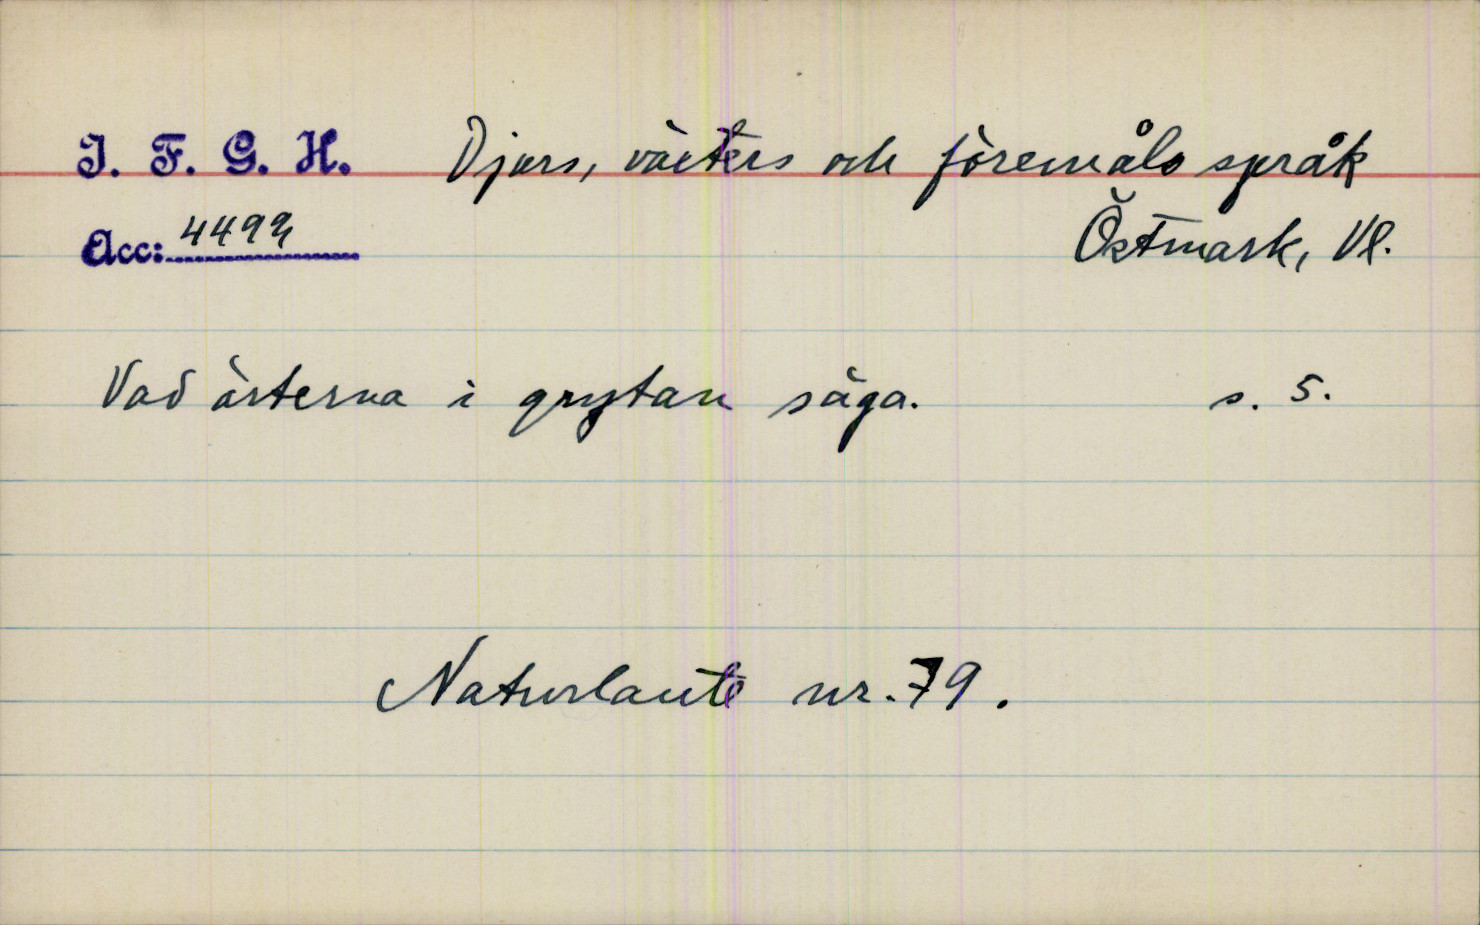 I. F. G. H. Djurs, växters och föremåls språk
Acc: Östmark, Vl.
Vad ärterna i grytan säga. s. 5.
Naturlaute nr. 79.